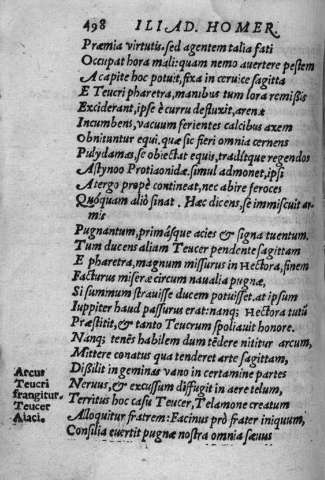 498 ILIAD. HOMER.
Præmia virtutis. sed agentem talia fati
Occupat hora mali: quam nemo avertere pestem
A capite hoc potuit, fixa in cervice sagitta
E Teucri pharetra, manibus tum lora remißis
Exciderant, ipse è curru defluxit, arenæ
Incumbens, vacuum ferientes calcibus axem
Obnituntur equi. quæ sic fieri omnia cernens
Pulydamas, se obiectat equis, traditque regendos
Astynoo Protiaonidæ. simul admonet, ipsi
A tergo propè contineat, nec abire feroces
Quóquam aliò sinat. Hæc dicens, se immiscuit ar-
mis
Pugnantum, primásque acies & signa tuentum.
Tum ducens aliam Teucer pendente sagittam
E pharetra, magnum missurus in Hectora, finem
Facturus miseræ circum navalia pugnæ,
Si summum stravisse ducem potuisset. at ipsum
Iuppiter haud passurus erat: nanq; Hectora tutũ
Præstitit, & tanto Teucrum spoliavit honore.
Nanq; tenẽs habilem dum tẽdere nititur arcum,
Mittere conatus qua tenderet arte sagittam,
Disiliit in geminas vano in certamine partes
Nervus, & excussum diffugit in aere telum,
Territus hoc casu Teucer, Telamone creatum
Alloquitur fratrem: Facinus prô frater iniquum,
Consilia evertit pugnæ nostra omnia sævus
Arcus
Teucri
frangitur.
Teucer
Aiaci.